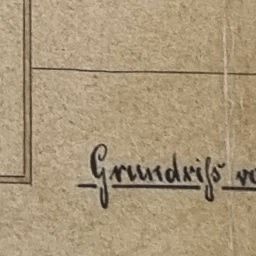 Grundriß vo